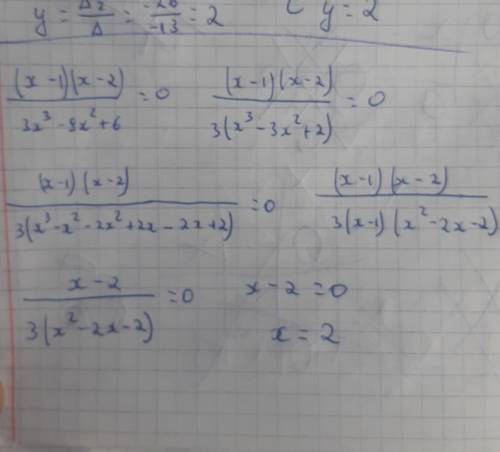 y = Δ2/Δ = -26/-13 = 2 { y = 2
(x-1)(x-2)/3x³-9x²+6 = 0 (x-1)(x-2)/3(x³-3x²+2) = 0
(x-1)(x-2)/3(x³-x²-2x²+2x-2x+2) = 0 (x-1)(x-2)/3(x-1)(x²-2x-2)
x-2/3(x²-2x-2) = 0 x-2=0
x=2